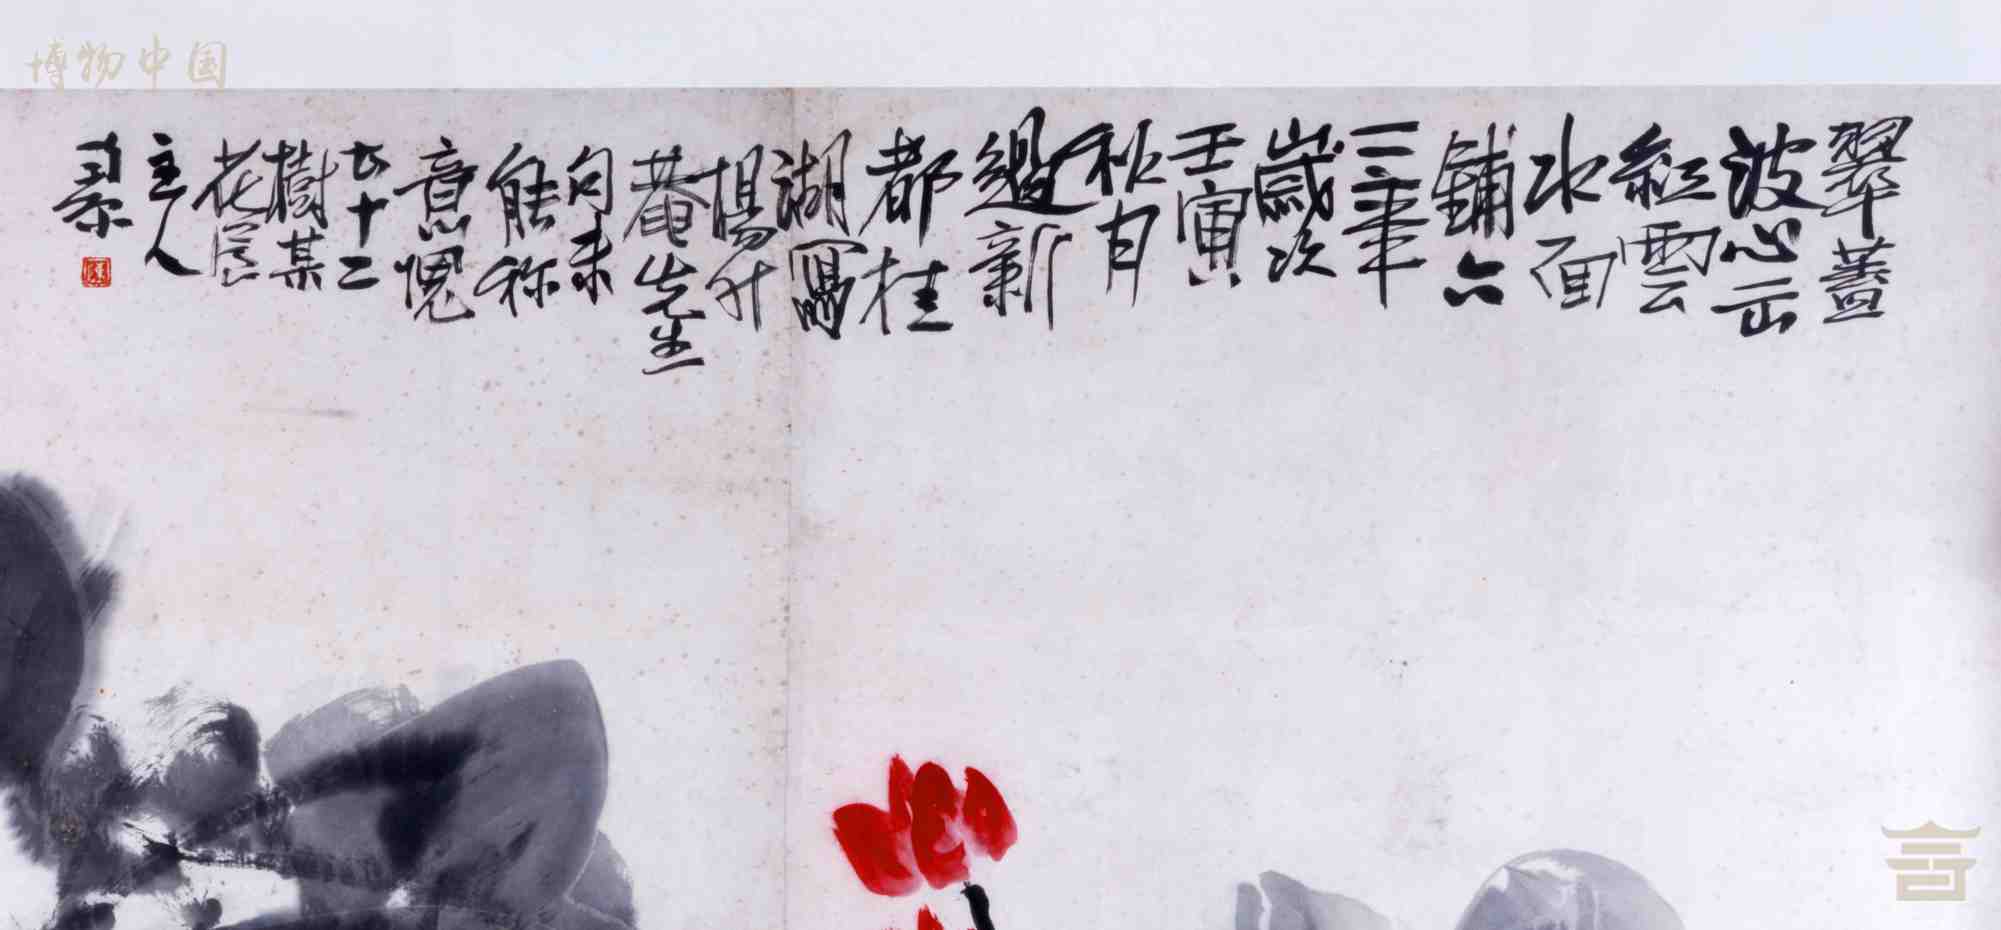 博物中国
翠蓋
波心出
紅雲
水面
鋪六
二年
歲次
壬寅
秋月
過新
都桂
湖寫
楊升
菴先生
句未
能称
意愧
七十二
樹某
花居
主人